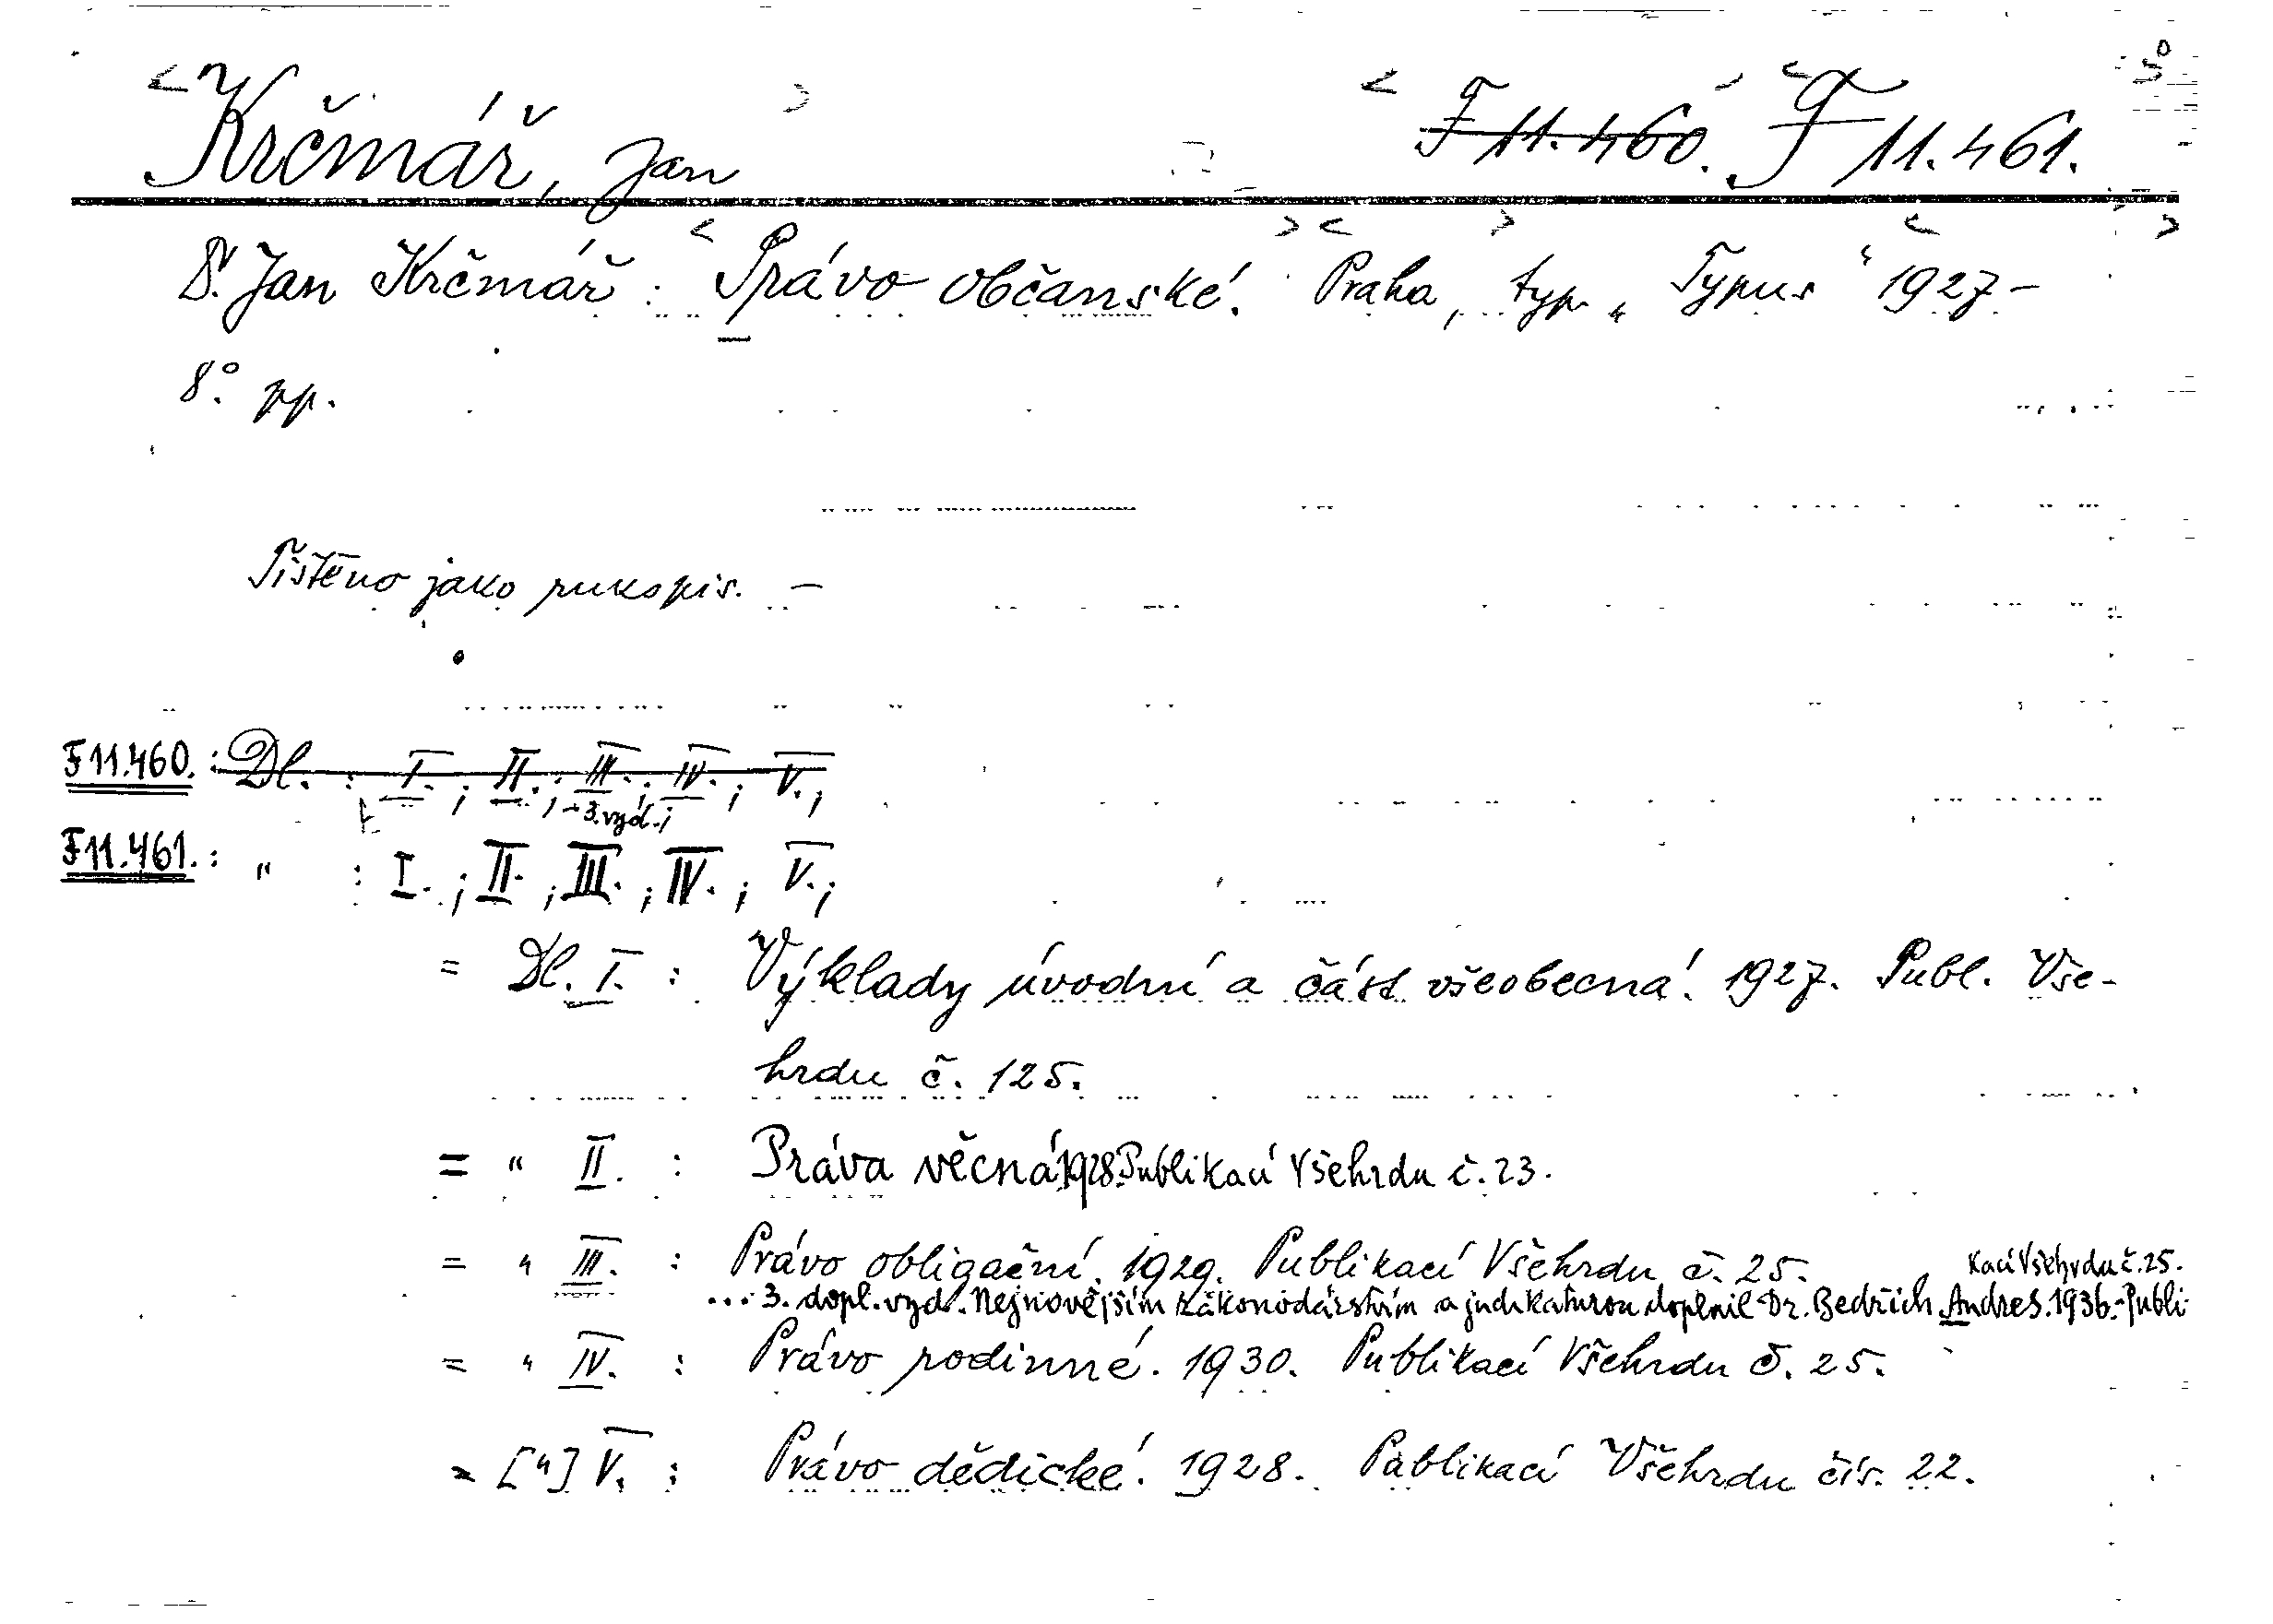 Krčmář, Jan F 11.460. F 11.461.
Dr. Jan Krčmář: Právo občanské. Praha, typ. „Typus“ 1927-
8° pp.
Tištěno jako rukopis. –
F 11.460. : Dl. : I. ; II. ; III. ; IV. ; V. ;
– 3. vyd. ;
F 11.461. : " : I. ; II. ; III. ; IV. ; V. ;
= Dl. I. : Výklady úvodní a část všeobecná. 1927. Publ. Vše-
hrdu č. 125.
= " II. : Práva věcná. 1928. Publikací Všehrdu č. 23.
= " III. : Právo obligační. 1929. Publikací Všehrdu č. 25.
... 3. dopl. vyd. Nejnovějším zákonodárstvím a judikaturou doplnil Dr. Bedřich Andres. 1936.- Publi-
kací Všehrdu č. 25.
= " IV. : Právo rodinné. 1930. Publikací Všehrdu č. 25.
= ["] V. : Právo dědické. 1928. Publikací Všehrdu čís. 22.